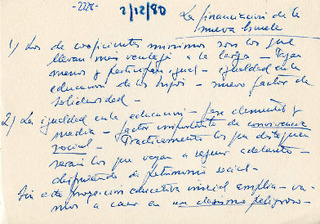 -222E-
2/12/80
La financiación de la
nueva Suecia
1) Los de coeficientes mínimos son los que
llevan más ventaja a la larga. Pagar
menos y participar igual - igualdad en la
educación de los hijos - nuevo factor de
solidaridad -
2) La igualdad en la educación - fase elemental y
media - factor importante de convivencia
social. - Prácticamente los que
serán los que vayan a seguir adelante -
disfrutando de patrimonio social -
Sin esta promoción educativa inicial
mos a caer en un clasismo peligroso -